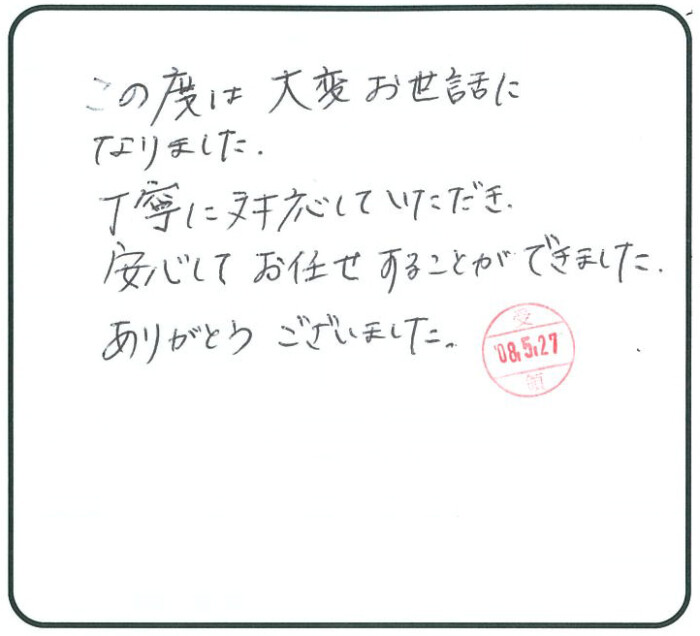 この度は 大変 お世話に
なりました.
丁寧に対応していただき.
安心して お任せ することが できました.
ありがとう ございました。
受
'08.5.27
領